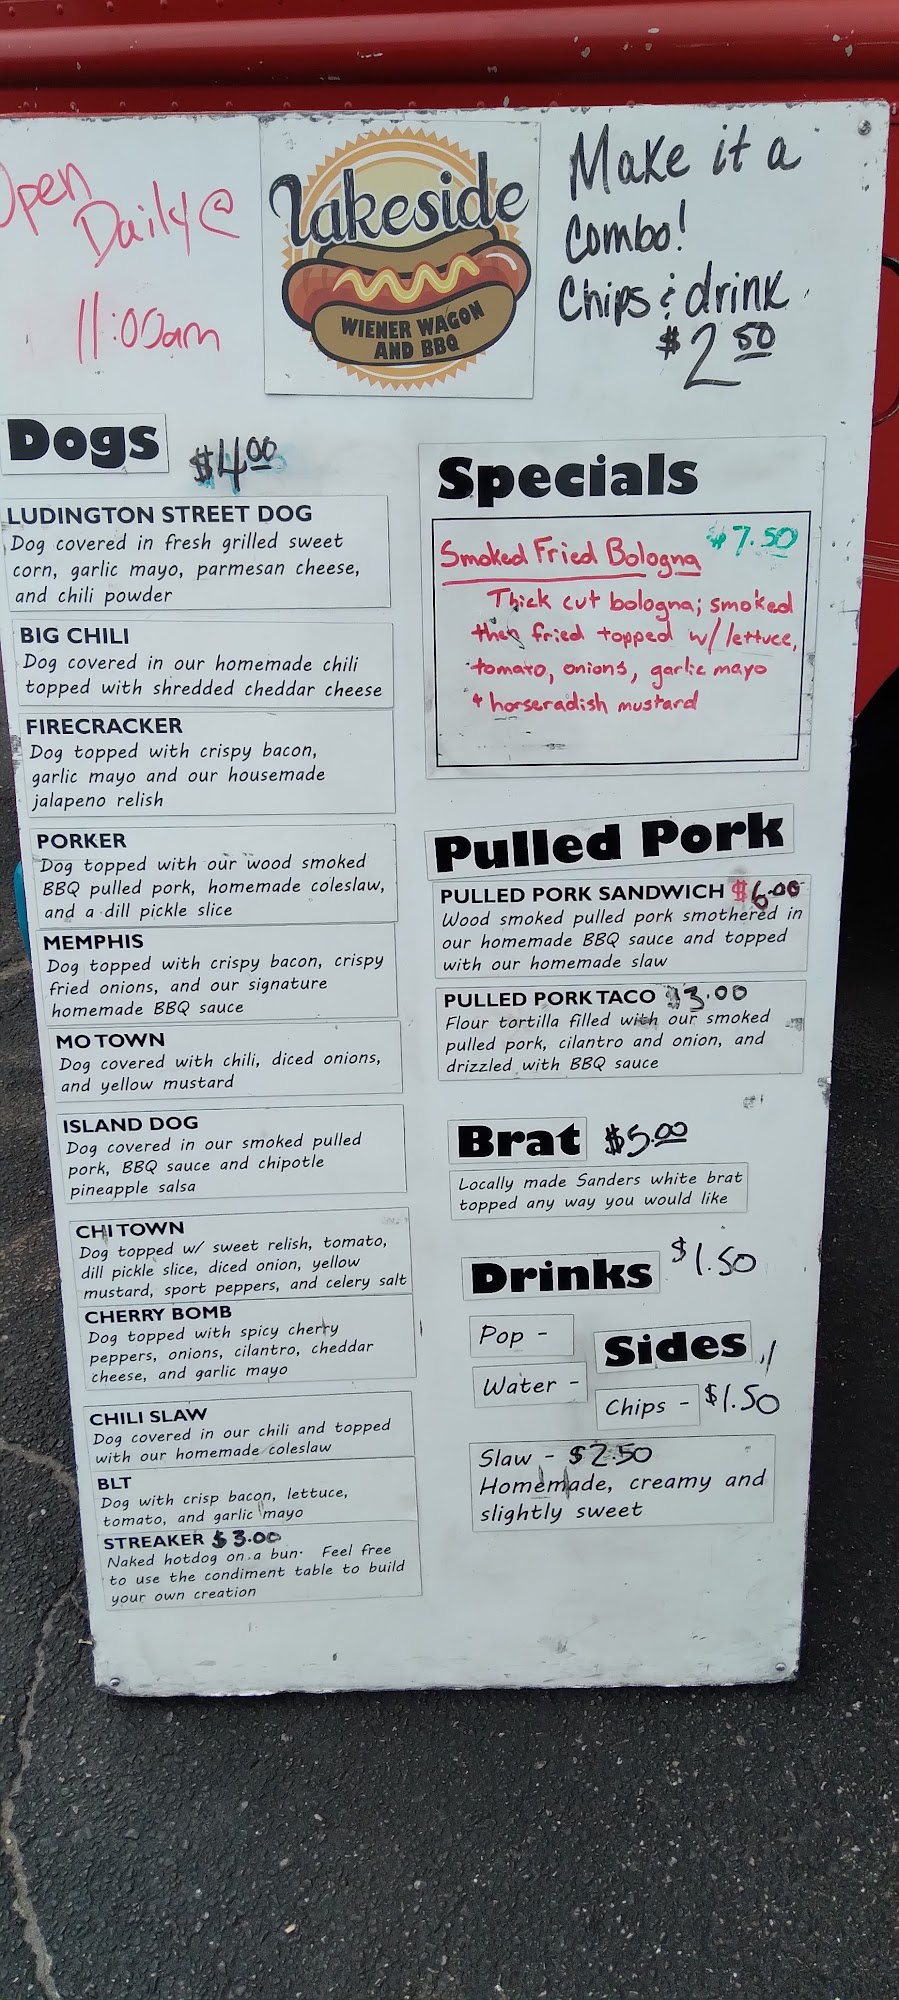 Open
Daily @
11:00am
Lakeside
WIENER WAGON
AND BBQ
Make it a
Combo!
Chips & drink
$2.50
Dogs $4.00
LUDINGTON STREET DOG
Dog covered in fresh grilled sweet
corn, garlic mayo, parmesan cheese,
and chili powder
BIG CHILI
Dog covered in our homemade chili
topped with shredded cheddar cheese
FIRECRACKER
Dog topped with crispy bacon,
garlic mayo and our housemade
jalapeno relish
PORKER
Dog topped with our wood smoked
BBQ pulled pork, homemade coleslaw,
and a dill pickle slice
MEMPHIS
Dog topped with crispy bacon, crispy
fried onions, and our signature
homemade BBQ sauce
MOTOWN
Dog covered with chili, diced onions,
and yellow mustard
ISLAND DOG
Dog covered in our smoked pulled
pork, BBQ sauce and chipotle
pineapple salsa
CHITOWN
Dog topped w/ sweet relish, tomato,
dill pickle slice, diced onion, yellow
mustard, sport peppers, and celery salt
CHERRY BOMB
Dog topped with spicy cherry
peppers, onions, cilantro, cheddar
cheese, and garlic mayo
CHILI SLAW
Dog covered in our chili and topped
with our homemade coleslaw
BLT
Dog with crisp bacon, lettuce,
tomato, and garlic mayo
STREAKER $3.00
Naked hotdog on a bun. Feel free
to use the condiment table to build
your own creation
Specials
Smoked Fried Bologna $7.50
Thick cut bologna; smoked
then fried topped w/ lettuce,
tomato, onions, garlic mayo
+ horseradish mustard
Pulled Pork
PULLED PORK SANDWICH $6.00
Wood smoked pulled pork smothered in
our homemade BBQ sauce and topped
with our homemade slaw
PULLED PORK TACO $3.00
Flour tortilla filled with our smoked
pulled pork, cilantro and onion, and
drizzled with BBQ sauce
Brat $5.00
Locally made Sanders white brat
topped any way you would like
Drinks $1.50
Pop -
Water -
Sides
Chips - $1.50
Slaw - $2.50
Homemade, creamy and
slightly sweet